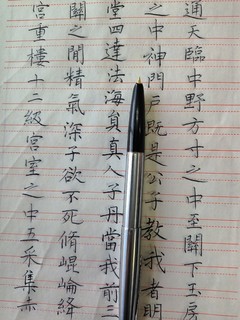 通天臨中野方寸之中至關下玉房
之中神門戶既是公子教我者明
堂四達法海員真人子丹當我前三
關之閒精氣深子欲不死脩崐崘絳
宮重樓十二級宮室之中五采集赤